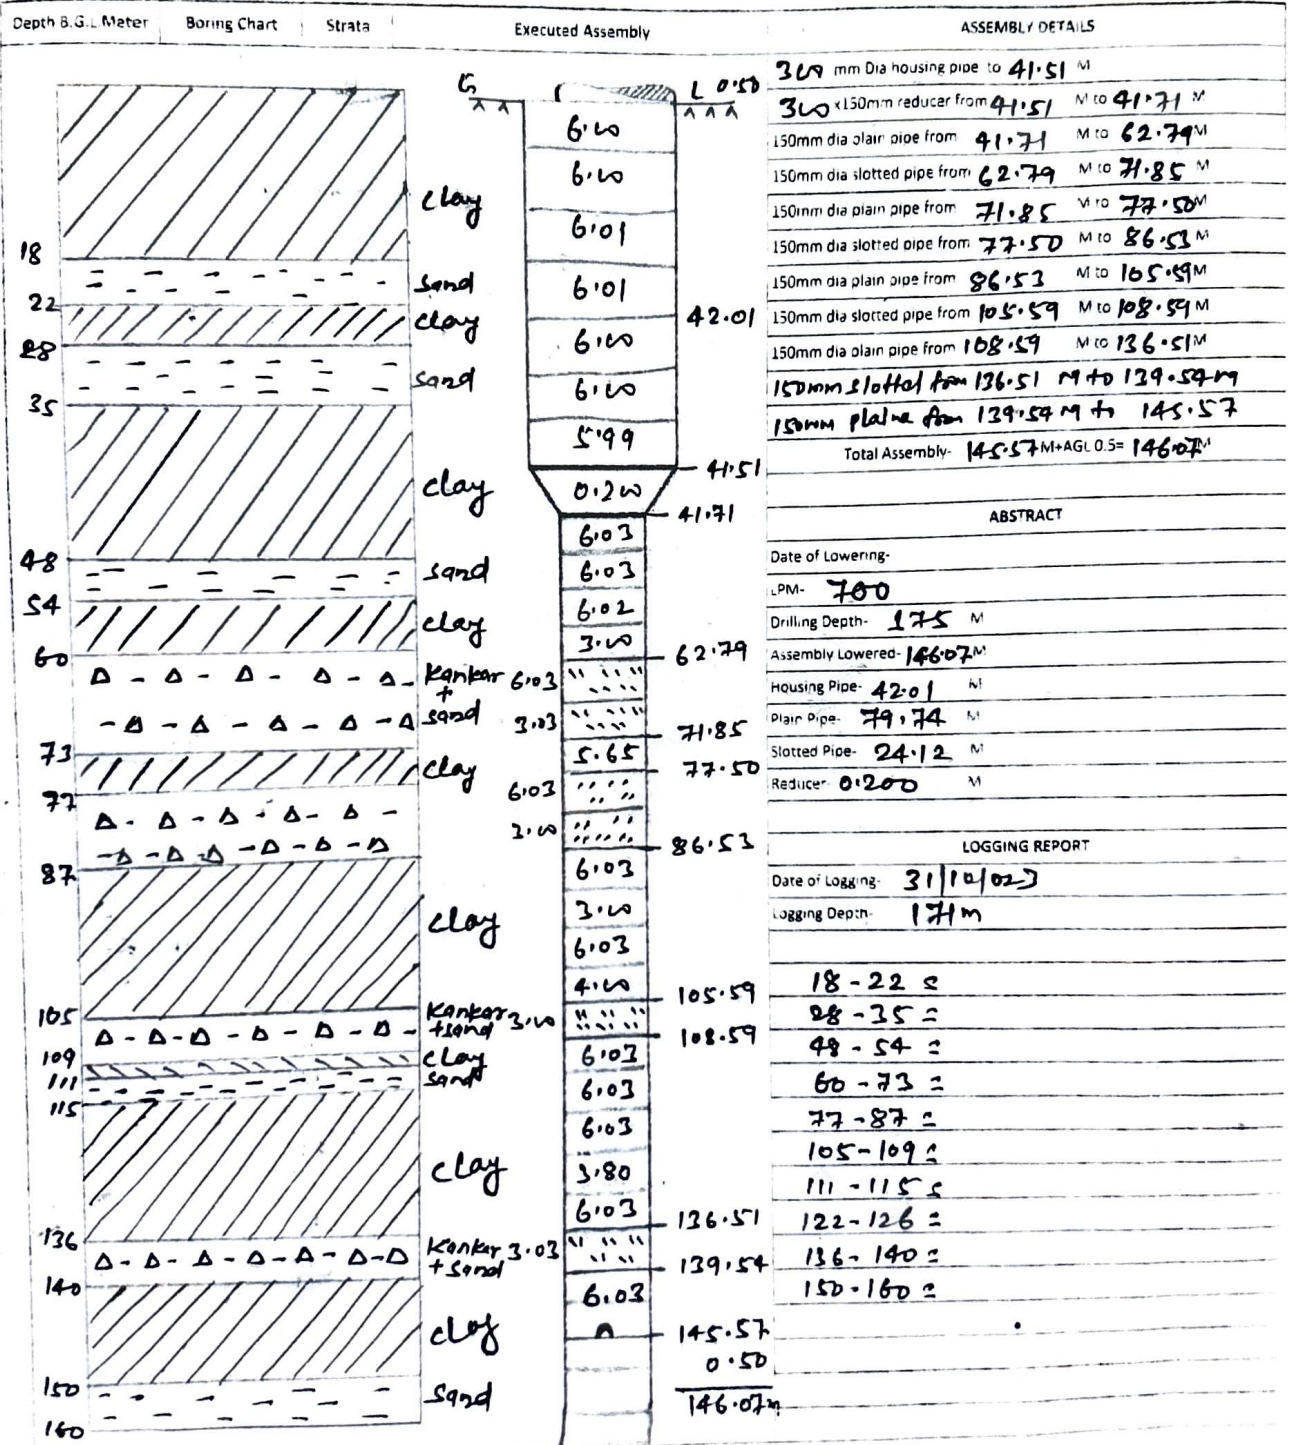 Depth B.G.L.Meter Boring Chart Strata Executed Assembly ASSEMBLY DETAILS
G L 0.50
18
22
28
35
48
54
60
73
77
87
105
109
111
115
136
140
150
160
clay
sand
clay
sand
clay
sand
clay
Kankar
+
sand
clay
clay
Kankar
+sand
clay
sand
clay
Kankar
+ sand
clay
sand
6.00
6.00
6.01
6.01
42.01
6.00
6.00
5.99
41.51
0.200
41.71
6.03
6.03
6.02
3.00
62.79
6.03
3.03
71.85
5.65
77.50
6.03
3.00
86.53
6.03
3.00
6.03
4.00
105.59
3.00
108.59
6.03
6.03
6.03
3.80
6.03
136.51
3.03
139.54
6.03
145.57
0.50
146.07m
300 mm Dia housing pipe to 41.51 M
300 x150mm reducer from 41.51 M to 41.71 M
150mm dia plain pipe from 41.71 M to 62.79 M
150mm dia slotted pipe from 62.79 M to 71.85 M
150mm dia plain pipe from 71.85 M to 77.50 M
150mm dia slotted pipe from 77.50 M to 86.53 M
150mm dia plain pipe from 86.53 M to 105.59 M
150mm dia slotted pipe from 105.59 M to 108.59 M
150mm dia plain pipe from 108.59 M to 136.51 M
150mm slotted from 136.51 M to 139.54 M
150mm plaine from 139.54 M to 145.57
Total Assembly- 145.57 M+AGL 0.5= 146.07 M
ABSTRACT
Date of Lowering-
LPM- 700
Drilling Depth- 175 M
Assembly Lowered- 146.07 M
Housing Pipe- 42.01 M
Plain Pipe- 79.74 M
Slotted Pipe- 24.12 M
Reducer- 0.200 M
LOGGING REPORT
Date of Logging- 31/10/023
Logging Depth- 171m
18-22 =
28-35 =
48-54 =
60-73 =
77-87 =
105-109 =
111-115 =
122-126 =
136-140 =
150-160 =